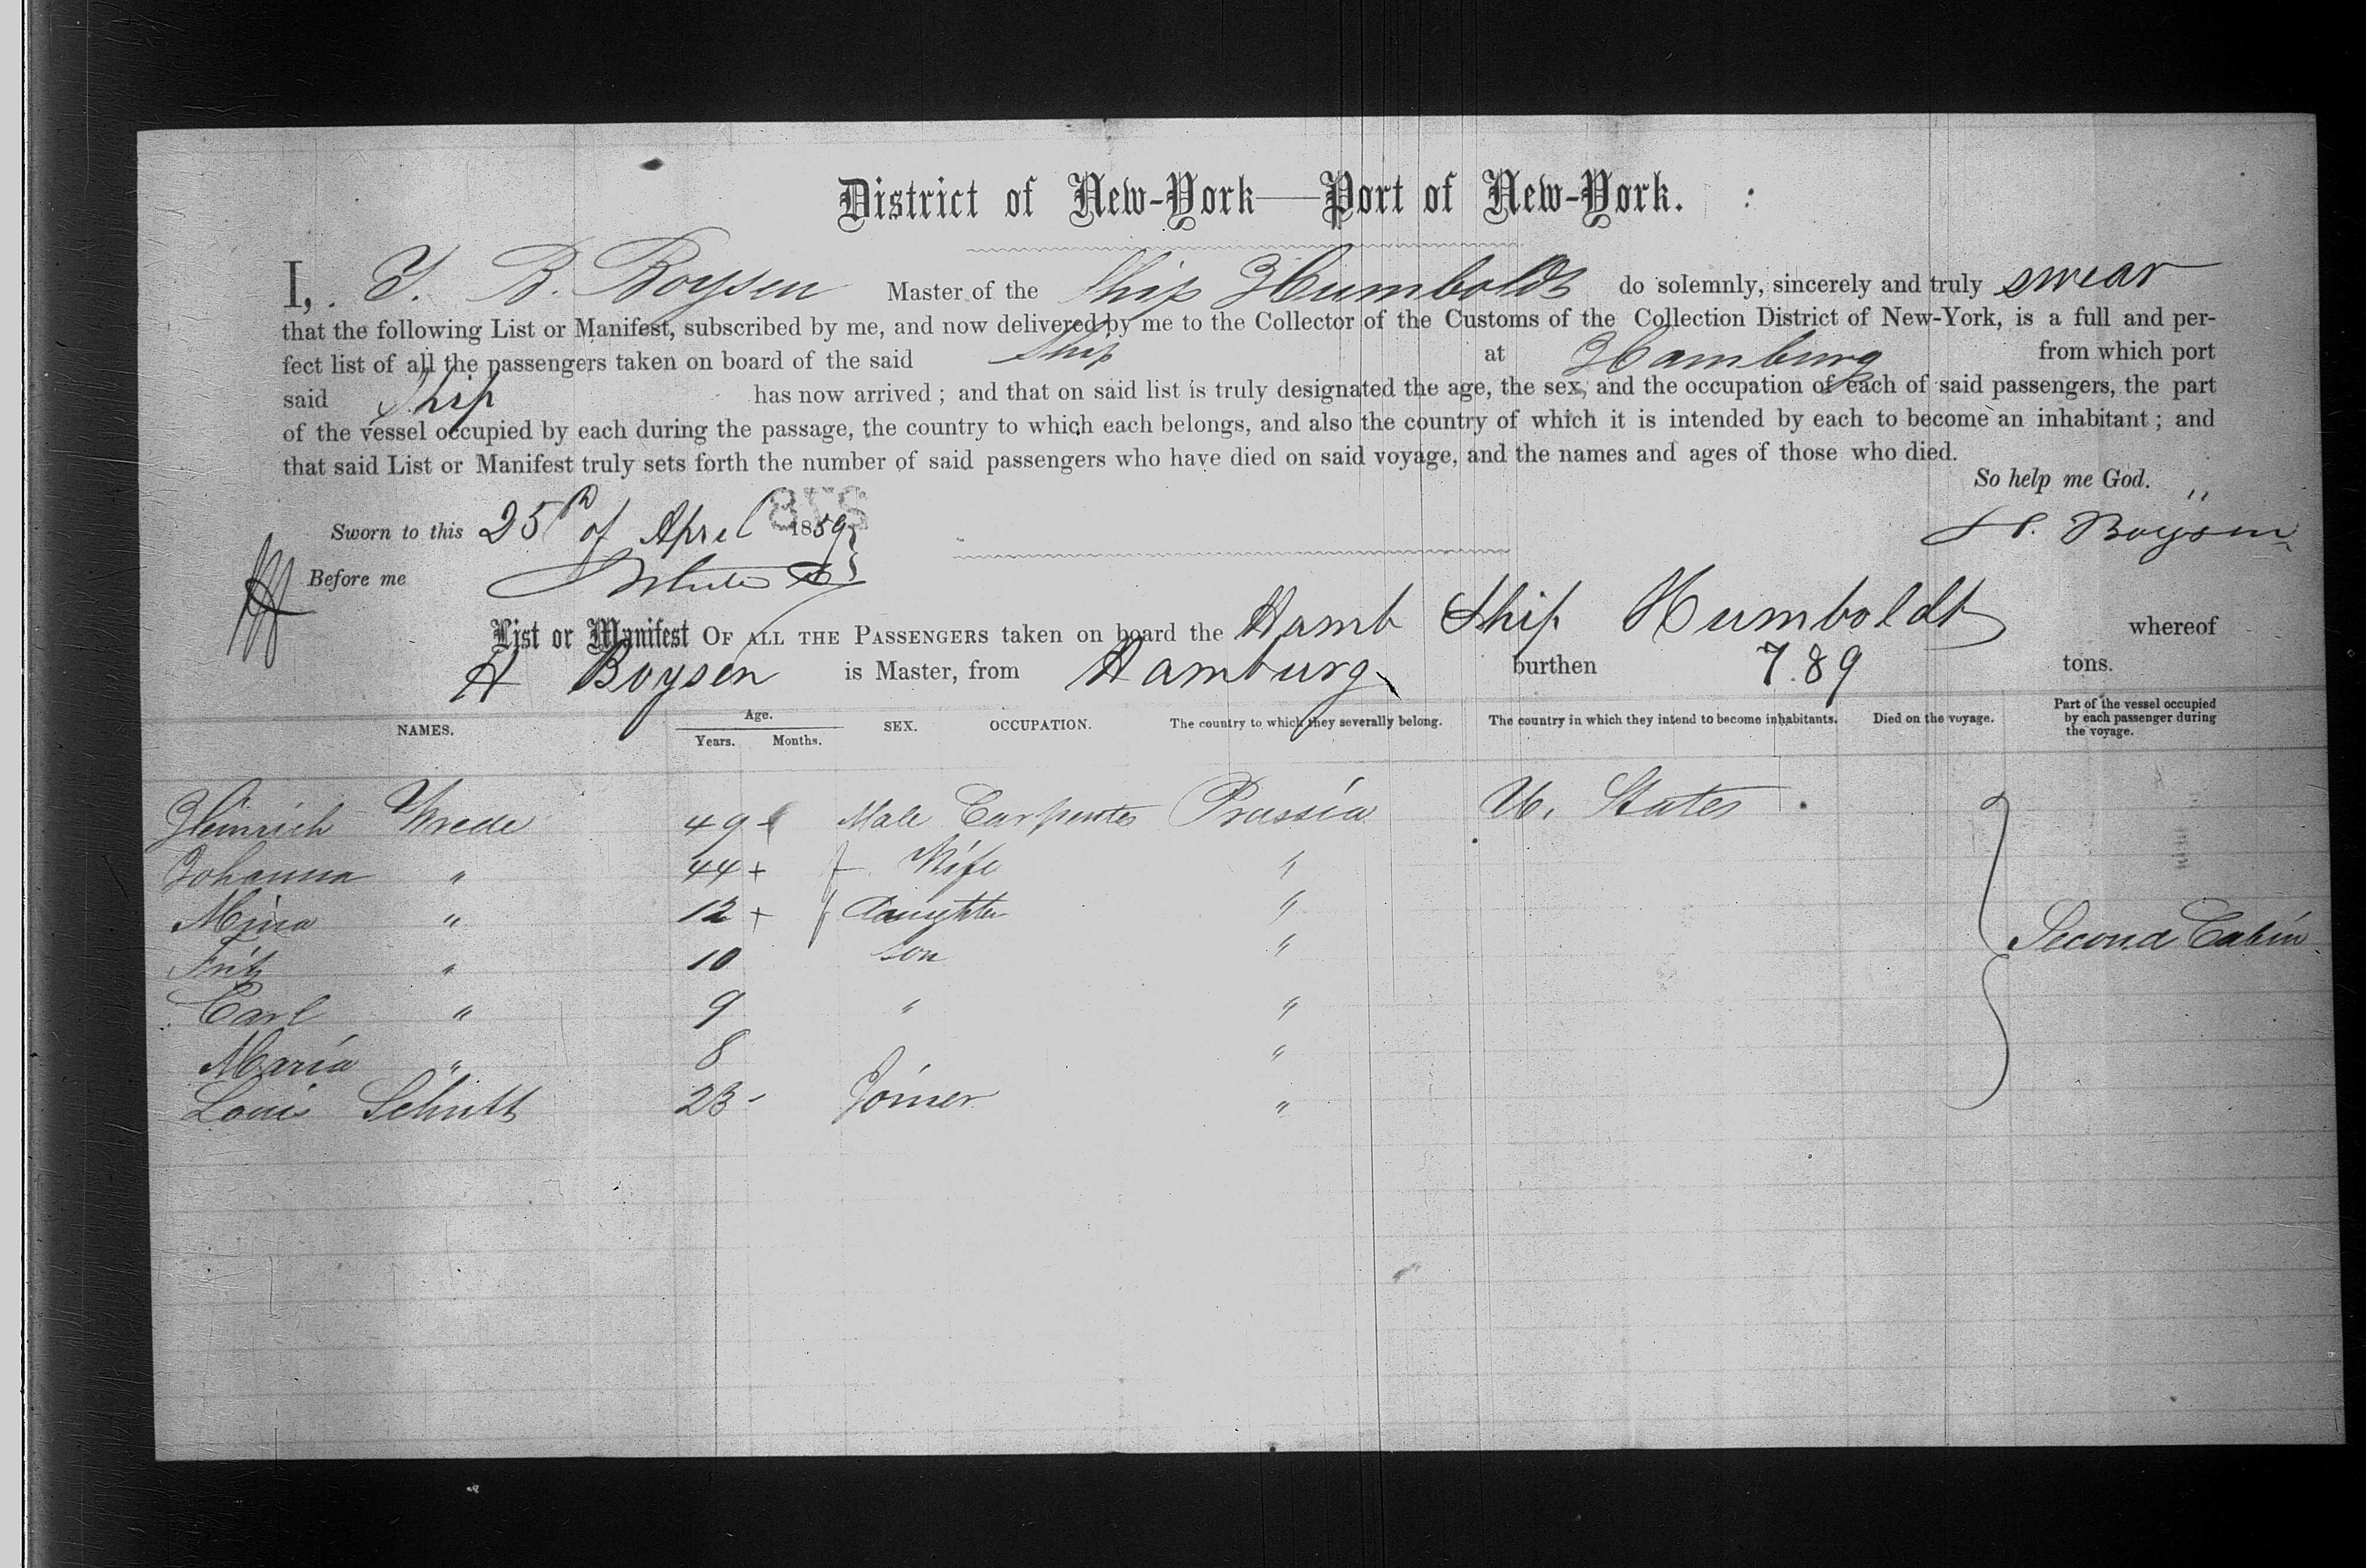 District of New-York—Port of New-York.
I, B. Boysen Master of the Ship Humboldt do solemnly, sincerely and truly swear
that the following List or Manifest, subscribed by me, and now delivered by me to the Collector of the Customs of the Collection District of New-York, is a full and per-
fect list of all the passengers taken on board of the said Ship at Hamburg from which port
said Ship has now arrived ; and that on said list is truly designated the age, the sex, and the occupation of each of said passengers, the part
of the vessel occupied by each during the passage, the country to which each belongs, and also the country of which it is intended by each to become an inhabitant ; and
that said List or Manifest truly sets forth the number of said passengers who have died on said voyage, and the names and ages of those who died.
So help me God.
Sworn to this 25th of April 1859 Boysen
Before me
List or Manifest OF ALL THE PASSENGERS taken on board the Hamb Ship Humboldt whereof
H Boysen is Master, from Hamburg burthen 789 tons.
NAMES. Age. Years. Months. SEX. OCCUPATION. The country to which they severally belong. The country in which they intend to become inhabitants. Died on the voyage. Part of the vessel occupied by each passenger during the voyage.
Heinrich Wrede 49 Male Carpenter Prussia U. States
Johanna " 44 + f Wife "
Mina " 12 + f daughter "
Fritz " 10 son "
Second Cabin
Carl " 9 " "
Maria " 8 "
Louis Schutt 23 - Joiner "